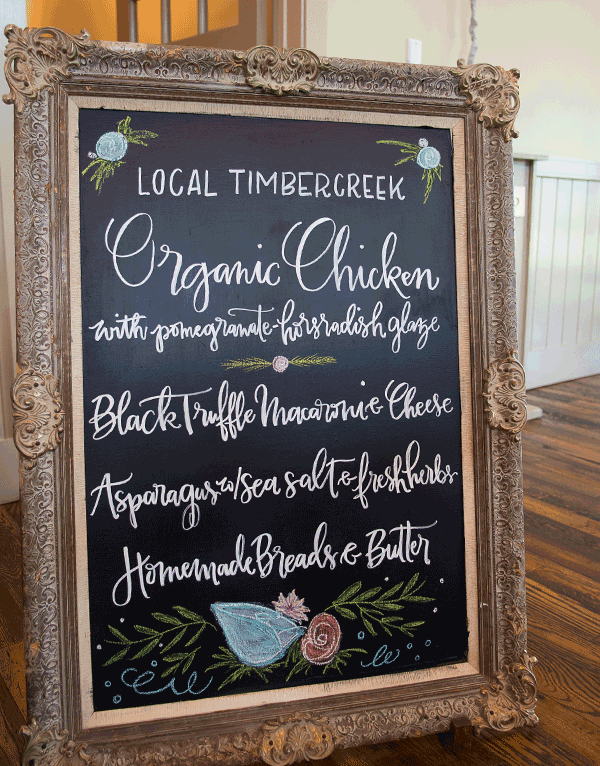 LOCAL TIMBERCREEK
Organic Chicken
with pomegranate-horsradish glaze
Black Truffle Macaroni & Cheese
Asparagus w/sea salt & fresh herbs
Homemade Breads & Butter